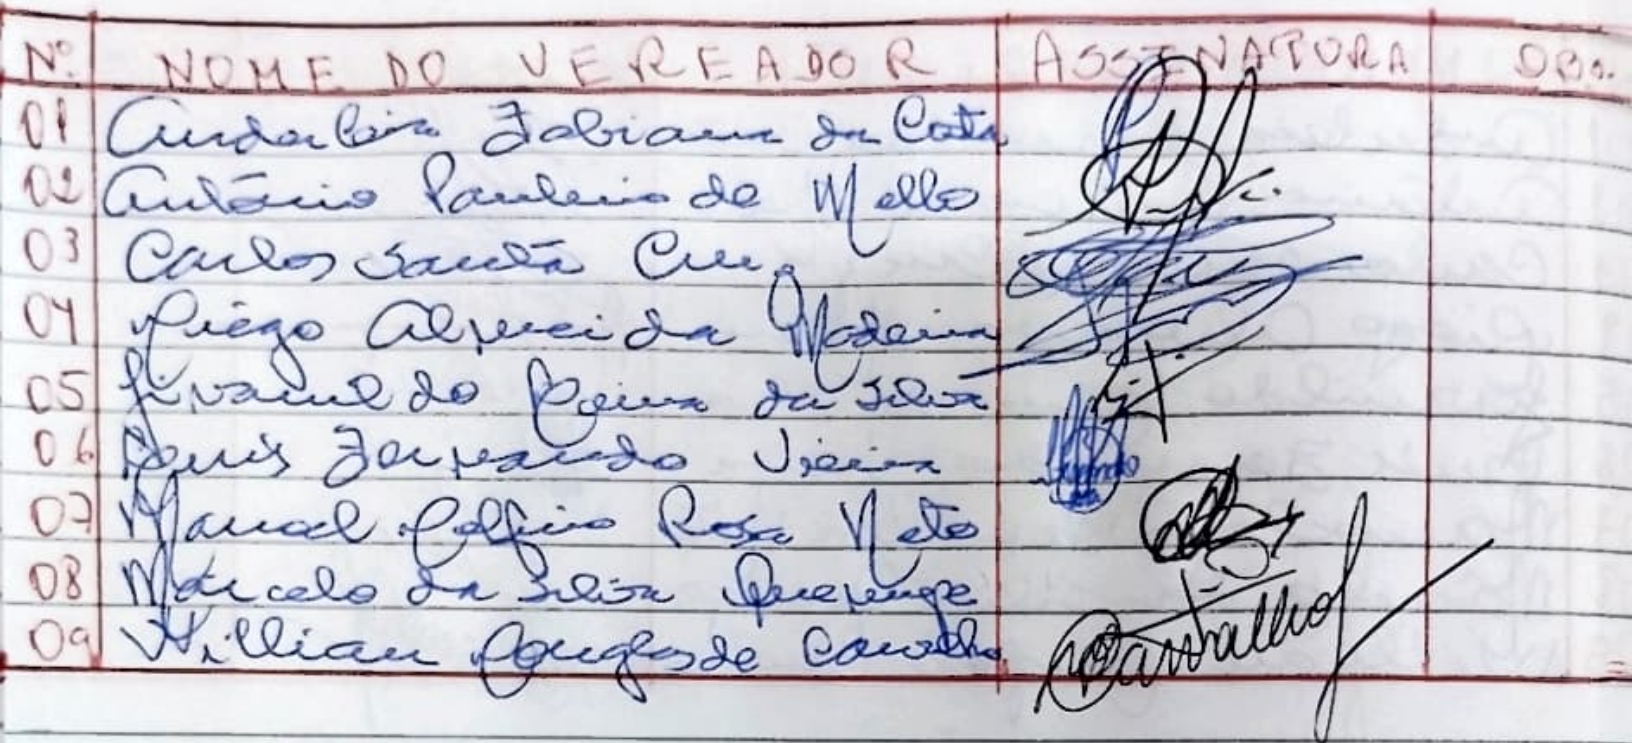 Nº NOME DO VEREADOR ASSINATURA OBS.
01 Anderleia Fabiana da Costa
02 Antônio Paulino de Mello
03 Carlos Santa Cruz
04 Diego Almeida Madeira
05 Jivanildo Paiva da Silva
06 Luis Fernando Vieira
07 Manoel Delfino Rosa Neto
08 Marcelo da Silva
09 Willian Douglas de Carvalho Carvalho